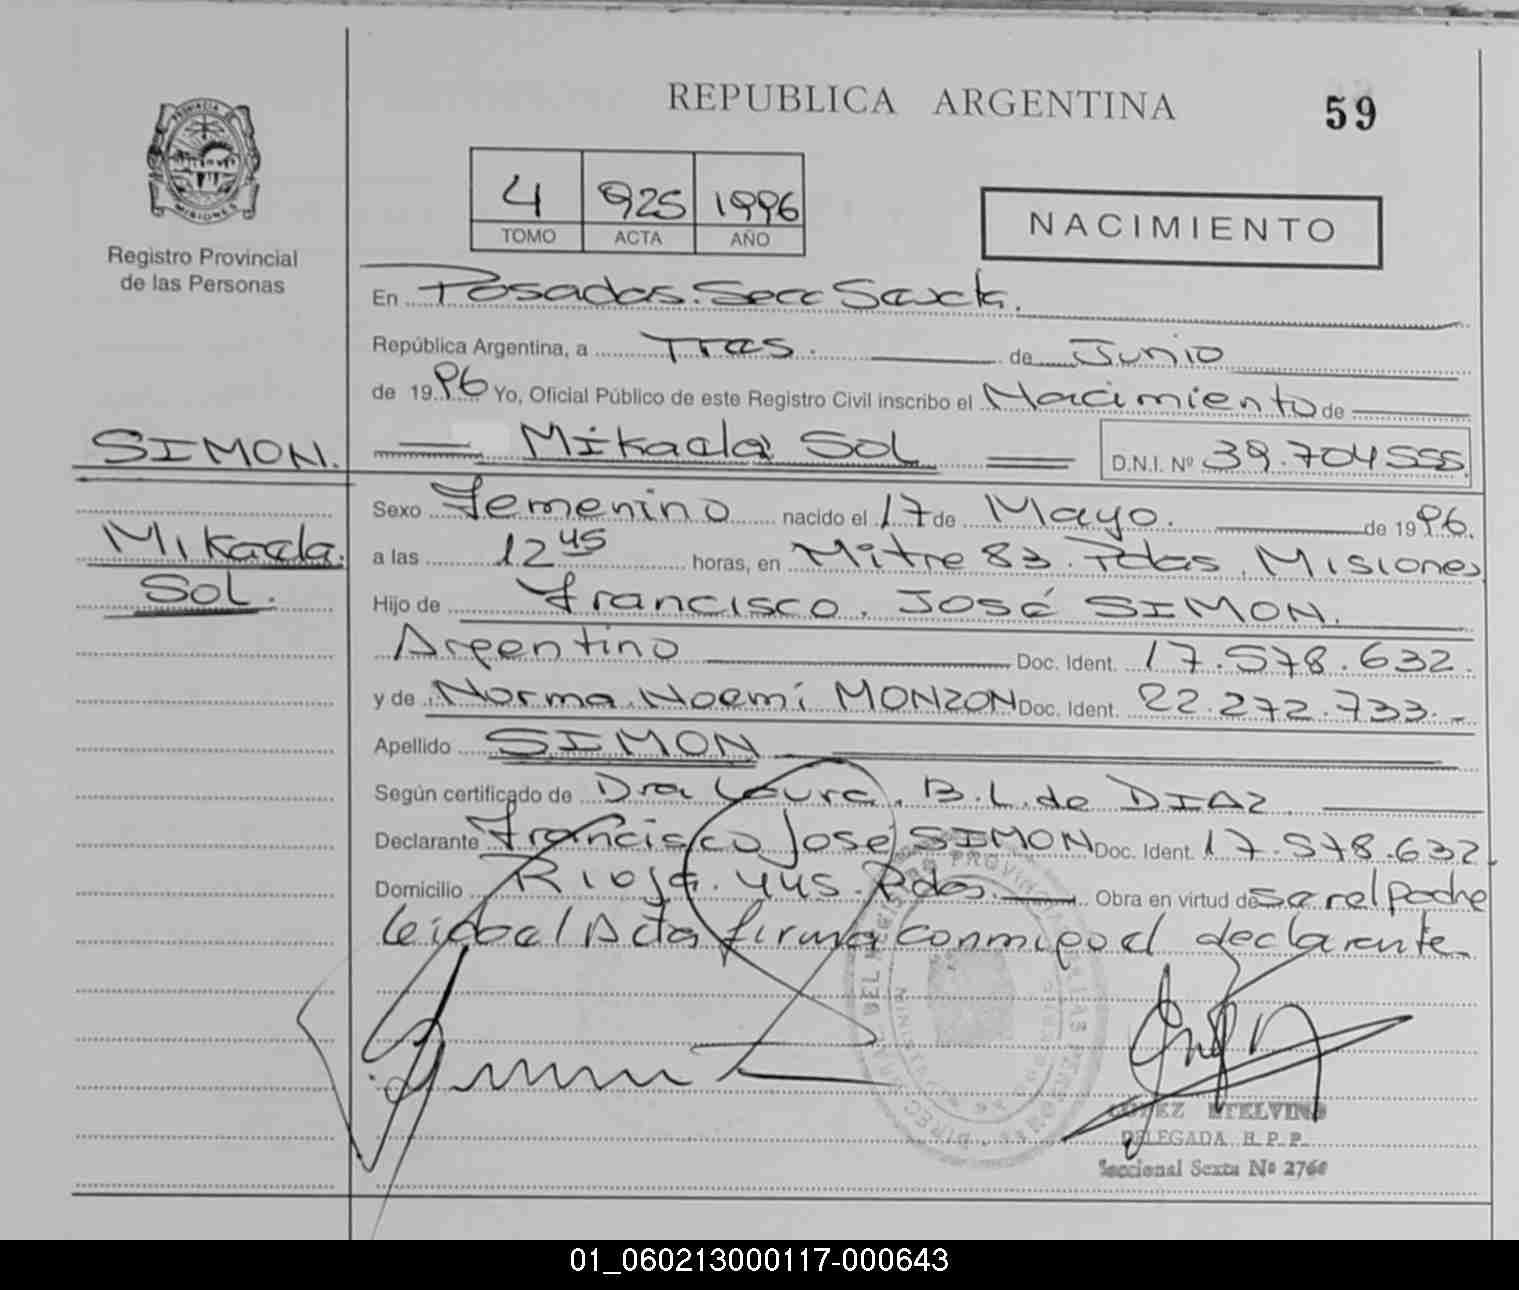 REPUBLICA ARGENTINA
59
PROVINCIA DE
MISIONES
Registro Provincial
de las Personas
4 925 1996
TOMO ACTA AÑO
NACIMIENTO
En Posadas. Secc Sexta.
República Argentina, a Tres. de Junio
de 1996 Yo, Oficial Público de este Registro Civil inscribo el Nacimiento de
SIMON.
Mikaela Sol D.N.I. Nº 39.704555
Mikaela.
Sol.
Sexo Femenino nacido el 17 de Mayo. de 1996.
a las 12 45 horas, en Mitre 83. Pdas. Misiones
Hijo de Francisco. José SIMON.
Argentino Doc. Ident. 17.578.632.
y de Norma Noemi MONZON Doc. Ident. 22.272.733.-
Apellido SIMON
Según certificado de Dra Laura. B.L. de DIAZ
Declarante Francisco José SIMON Doc. Ident. 17.578.632.
Domicilio Rioja. 445. Pdas. Obra en virtud de ser el padre
leida el Acta firma conmigo el declarante
LOPEZ ETELVINO
DELEGADA R.P.P.
Seccional Sexta Nº 2760
01_060213000117-000643